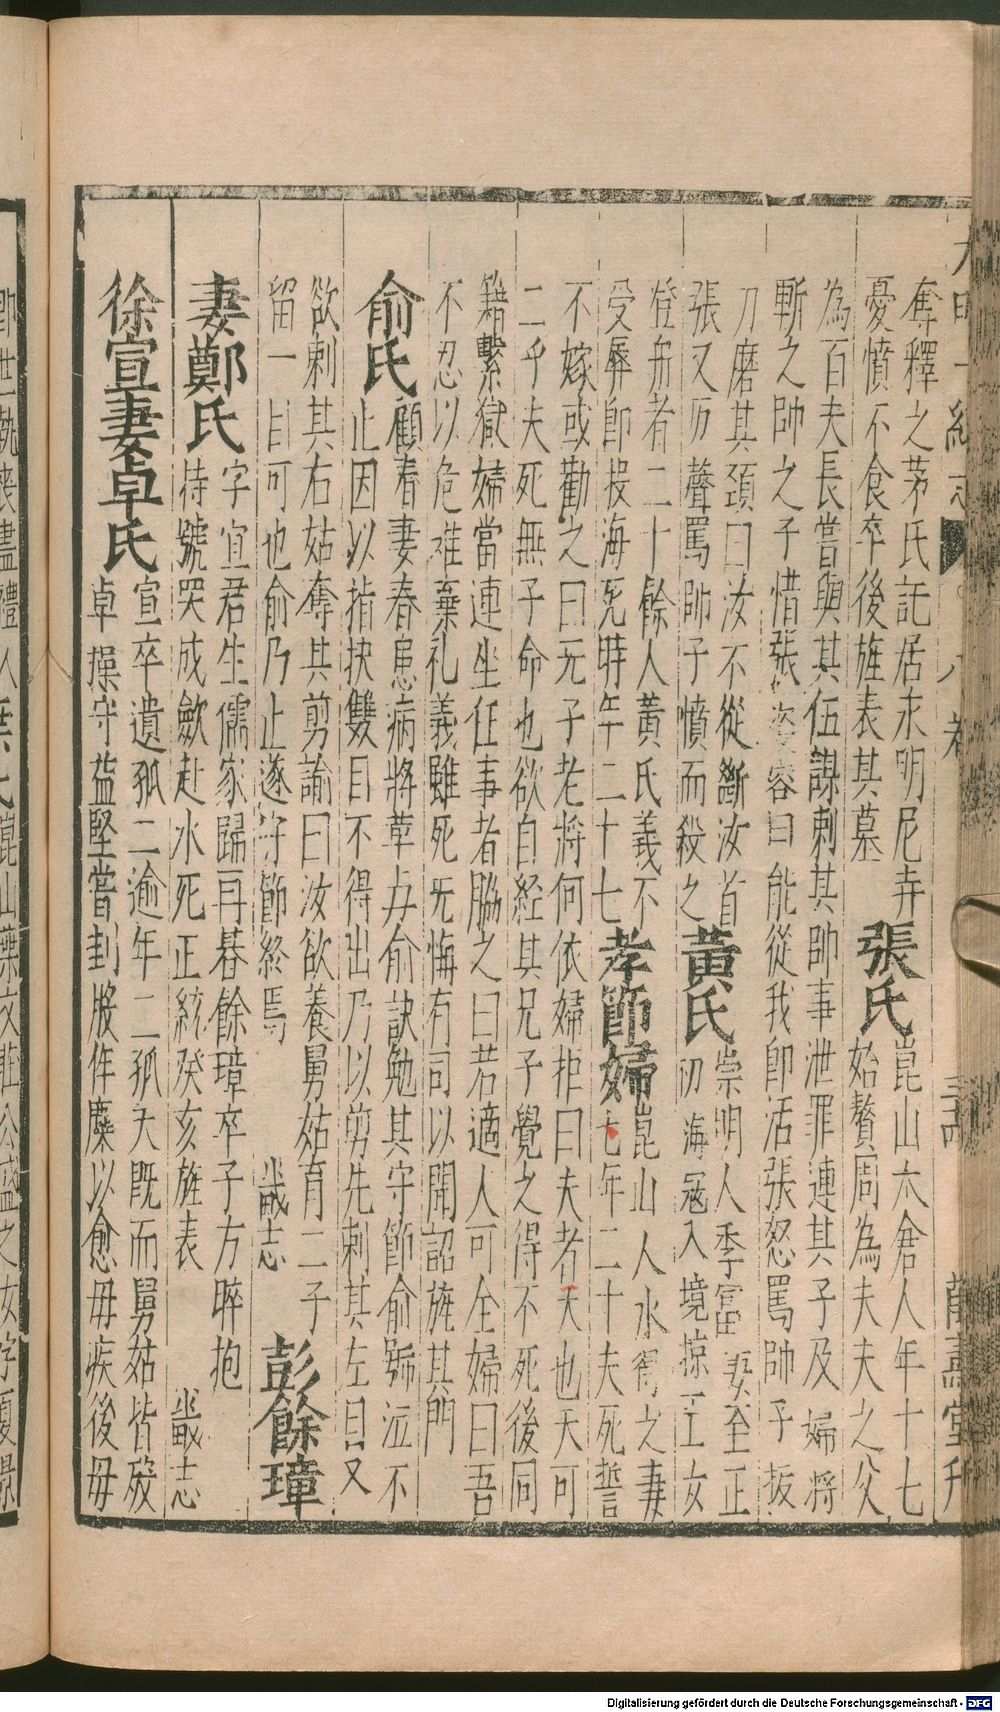 大明一統志 八卷 三 萬壽堂刊
奪釋之茅氏託居永明尼寺 張氏 崑山太倉人年十七
憂憤不食卒後旌表其墓 始贅周為夫夫之父
為百夫長嘗與其伍謀刺其帥事泄罪連其子及婦將
斬之帥之子惜張姿容曰能從我即活張怒罵帥子扳
刀磨其頚曰汝不從斷汝首 黃氏 崇明人季富妻至正
張又厉聲罵帥子憤而殺之 初海寇入境掠子女
登舟者二十餘人黃氏義不
受辱即投海死時年二十七 孝節婦 崑山人水
之妻
七年二十夫死誓
不嫁或勸之曰无子老將何依婦拒曰夫者天也天可
二乎夫死無子命也欲自経其兄子覺之得不死後同
籍繫獄婦當連坐任事者脇之曰若適人可全婦曰吾
不忍以危難棄礼義雖死无悔有司以聞詔旌其門
俞氏 顧春妻春患病將革与俞訣勉其守節俞號泣不
止因以指抉雙目不得出乃以剪先刺其左目又
欲刺其右姑奪其剪諭曰汝欲養舅姑育二子
留一目可也俞乃止遂守節終焉 崴志 彭餘璋
妻鄭氏 字宜君生儒家歸再朞餘璋卒子方晬抱
持號哭成歛赴水死正統癸亥旌表 崴志
徐宣妻卓氏 宣卒遺孤二逾年二孤夭既而舅姑皆殁
卓操守益堅嘗刲股侔糜以愈毋疾後毋
即世執喪盡禮人
葉氏崑山葉文莊公盛之女字夏景
Digitalisierung gefördert durch die Deutsche Forschungsgemeinschaft - DFG